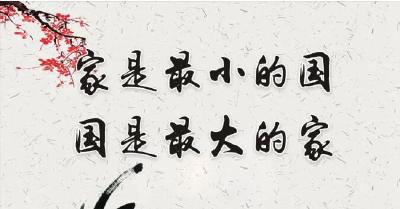 家是最小的国
国是最大的家